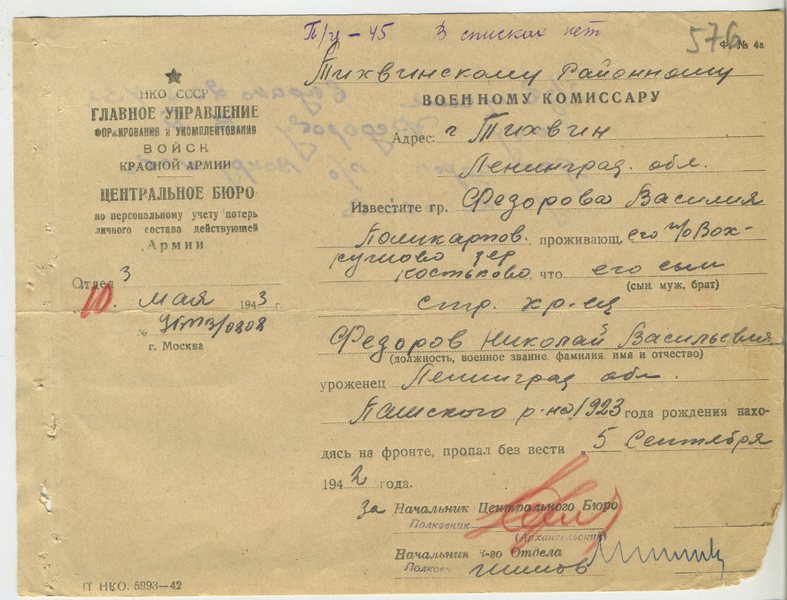 П/у-45 В списках нет
576
Ф. № 4а
НКО СССР
ГЛАВНОЕ УПРАВЛЕНИЕ
ФОРМИРОВАНИЯ и УКОМПЛЕКТОВАНИЯ
ВОЙСК
КРАСНОЙ АРМИИ
ЦЕНТРАЛЬНОЕ БЮРО
по персональному учету потерь
личного состава действующей
Армии
Отдел 3
10. мая 1943 г.
№
г. Москва
Тихвинскому Районному
ВОЕННОМУ КОМИССАРУ
Адрес: г Тихвин
Ленинград. обл.
Известите гр. Федорова Василия
Поликарпов. проживающ. его
дер
костьково что его сын
(сын. муж, брат)
стр. кр-ец
Федоров Николай Васильевич
(должность, военное звание, фамилия, имя и отчество)
уроженец Ленинград обл.
Пашского р-на 1923 года рождения нахо-
дясь на фронте, пропал без вести 5 Сентября
1942 года.
За Начальник Центрального Бюро
Полковник
(Архангельский)
Начальник 3-го Отдела
Полковн
IT НКО. 5993—42